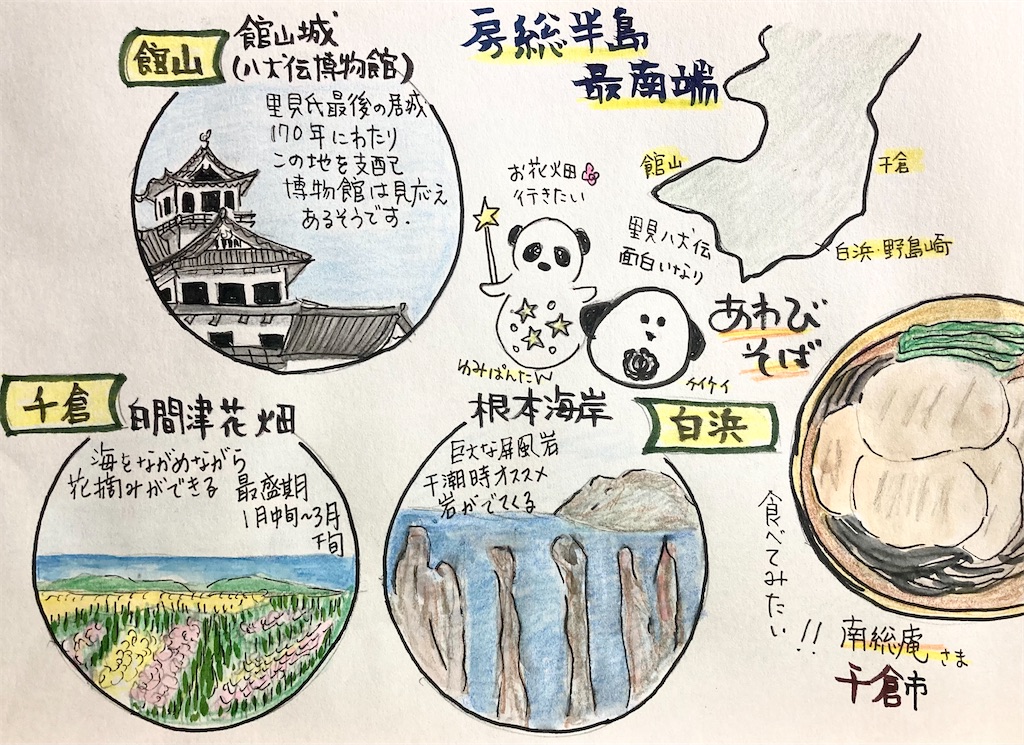 房総半島
最南端
館山
千倉
白浜・野島崎
館山
館山城
(八犬伝博物館)
里見氏最後の居城
170年にわたり
この地を支配
博物館は見応え
あるそうです.
お花畑
行きたい
里見八犬伝
面白いなり
ゆみぱんたん
ケイケイ
あわび
そば
千倉
白間津花畑
海をながめながら
花摘みができる
最盛期
1月中旬〜3月
下旬
根本海岸
白浜
巨大な屏風岩
干潮時オススメ
岩がでてくる
食べてみたい!!
南総庵さま
千倉市